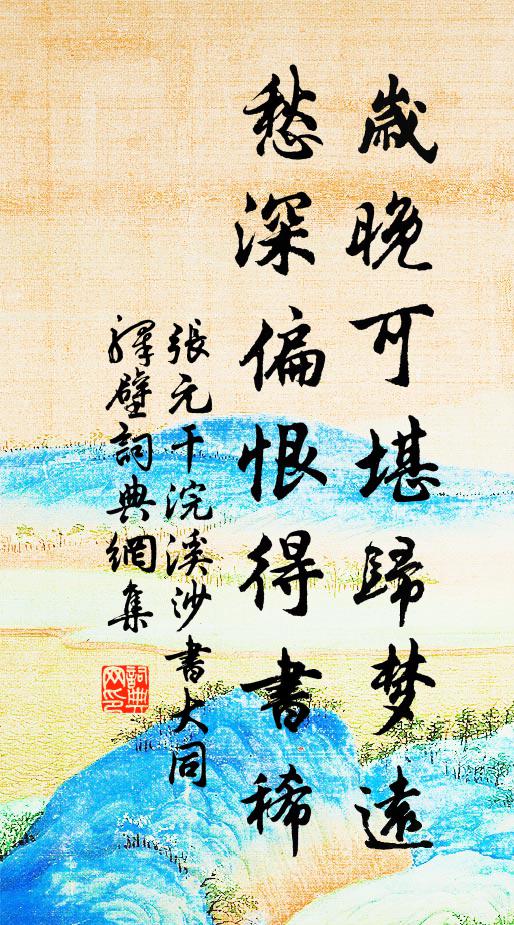 歲晚可堪歸梦遠
愁深偏恨得書稀
張元干浣溪沙書大同
驛壁詞典網集
詞典
网印